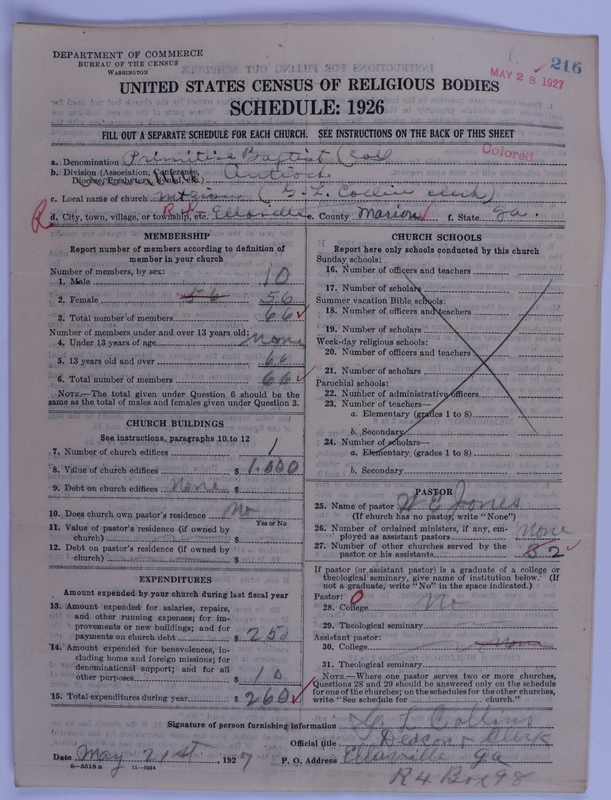 216
MAY 28 1927
DEPARTMENT OF COMMERCE
BUREAU OF THE CENSUS
WASHINGTON
UNITED STATES CENSUS OF RELIGIOUS BODIES
SCHEDULE: 1926
FILL OUT A SEPARATE SCHEDULE FOR EACH CHURCH. SEE INSTRUCTIONS ON THE BACK OF THIS SHEET
Colored
a. Denomination Primitive Baptist (Col
b. Division (Association, Conference, Antioch
Diocese, Presbytery, Synod, etc.)
c. Local name of church Mt Zion (G. L. Collin clerk)
R d. City, town, village, or township, etc. R 4 Ellaville e. County Marion f. State Ga.
MEMBERSHIP
Report number of members according to definition of
member in your church
Number of members, by sex:
1. Male 10
2. Female 56 56
3. Total number of members 66
Number of members under and over 13 years old:
4. Under 13 years of age none
5. 13 years old and over 66
6. Total number of members 66
NOTE.—The total given under Question 6 should be the
same as the total of males and females given under Question 3.
CHURCH BUILDINGS
See instructions, paragraphs 10 to 12
7. Number of church edifices 1
8. Value of church edifices $ 1.000
9. Debt on church edifices None $
10. Does church own pastor's residence No
Yes or No
11. Value of pastor's residence (if owned by
church) $
12. Debt on pastor's residence (if owned by
church) $
EXPENDITURES
Amount expended by your church during last fiscal year
13. Amount expended for salaries, repairs,
and other running expenses; for im-
provements or new buildings; and for
payments on church debt $ 250
14. Amount expended for benevolences, in-
cluding home and foreign missions; for
denominational support; and for all
other purposes $ 10
15. Total expenditures during year $ 260
CHURCH SCHOOLS
Report here only schools conducted by this church
Sunday schools:
16. Number of officers and teachers
17. Number of scholars
Summer vacation Bible schools:
18. Number of officers and teachers
19. Number of scholars
Week-day religious schools:
20. Number of officers and teachers
21. Number of scholars
Parochial schools:
22. Number of administrative officers
23. Number of teachers—
a. Elementary (grades 1 to 8)
b. Secondary
24. Number of scholars—
a. Elementary (grades 1 to 8)
b. Secondary
PASTOR
25. Name of pastor W E Jones
(If church has no pastor, write "None")
26. Number of ordained ministers, if any, em-
ployed as assistant pastors None
27. Number of other churches served by the
pastor or his assistants 2
If pastor (or assistant pastor) is a graduate of a college or
theological seminary, give name of institution below. (If
not a graduate, write "No" in the space indicated.)
Pastor: 0
28. College No
29. Theological seminary
Assistant pastor:
30. College None
31. Theological seminary
NOTE.—Where one pastor serves two or more churches,
Questions 28 and 29 should be answered only on the schedule
for one of the churches; on the schedules for the other churches,
write "See schedule for church."
Signature of person furnishing information G. L Collins
Official title Deacon & Clerk
Date May 21st, 1927 P. O. Address Ellaville Ga
8—5518 a 11—9024
R 4 Box 98